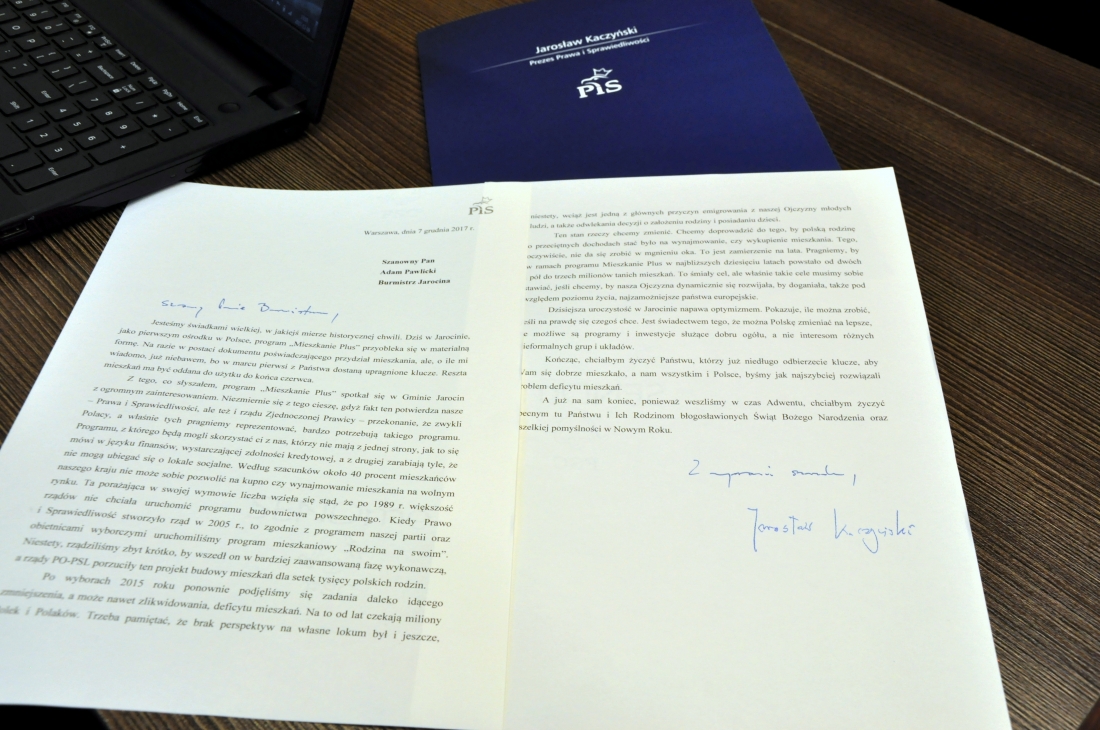 Jarosław Kaczyński
Prezes Prawa i Sprawiedliwości
PiS
PiS
Warszawa, dnia 7 grudnia 2017 r.
Szanowny Pan
Adam Pawlicki
Burmistrz Jarocina
Panie Burmistrzu,
Jesteśmy świadkami wielkiej, w jakiejś mierze historycznej chwili. Dziś w Jarocinie,
jako pierwszym ośrodku w Polsce, program „Mieszkanie Plus" przyobleka się w materialną
formę. Na razie w postaci dokumentu poświadczającego przydział mieszkania, ale, o ile mi
wiadomo, już niebawem, bo w marcu pierwsi z Państwa dostaną upragnione klucze. Reszta
mieszkań ma być oddana do użytku do końca czerwca.
Z tego, co słyszałem, program „Mieszkanie Plus" spotkał się w Gminie Jarocin
z ogromnym zainteresowaniem. Niezmiernie się z tego cieszę, gdyż fakt ten potwierdza nasze
– Prawa i Sprawiedliwości, ale też i rządu Zjednoczonej Prawicy – przekonanie, że zwykli
Polacy, a właśnie tych pragniemy reprezentować, bardzo potrzebują takiego programu.
Programu, z którego będą mogli skorzystać ci z nas, którzy nie mają z jednej strony, jak to się
mówi w języku finansów, wystarczającej zdolności kredytowej, a z drugiej zarabiają tyle, że
nie mogą ubiegać się o lokale socjalne. Według szacunków około 40 procent mieszkańców
naszego kraju nie może sobie pozwolić na kupno czy wynajmowanie mieszkania na wolnym
rynku. Ta porażająca w swojej wymowie liczba wzięła się stąd, że po 1989 r. większość
rządów nie chciała uruchomić programu budownictwa powszechnego. Kiedy Prawo
i Sprawiedliwość stworzyło rząd w 2005 r., to zgodnie z programem naszej partii oraz
obietnicami wyborczymi uruchomiliśmy program mieszkaniowy „Rodzina na swoim".
Niestety, rządziliśmy zbyt krótko, by wszedł on w bardziej zaawansowaną fazę wykonawczą,
a rządy PO-PSL porzuciły ten projekt budowy mieszkań dla setek tysięcy polskich rodzin.
Po wyborach 2015 roku ponownie podjęliśmy się zadania daleko idącego
zmniejszenia, a może nawet zlikwidowania, deficytu mieszkań. Na to od lat czekają miliony
i Polaków. Trzeba pamiętać, że brak perspektyw na własne lokum był i jeszcze,
niestety, wciąż jest jedną z głównych przyczyn emigrowania z naszej Ojczyzny młodych
ludzi, a także odwlekania decyzji o założeniu rodziny i posiadaniu dzieci.
Ten stan rzeczy chcemy zmienić. Chcemy doprowadzić do tego, by polską rodzinę
o przeciętnych dochodach stać było na wynajmowanie, czy wykupienie mieszkania. Tego,
oczywiście, nie da się zrobić w mgnieniu oka. To jest zamierzenie na lata. Pragniemy, by
w ramach programu Mieszkanie Plus w najbliższych dziesięciu latach powstało od dwóch
pół do trzech milionów tanich mieszkań. To śmiały cel, ale właśnie takie cele musimy sobie
stawiać, jeśli chcemy, by nasza Ojczyzna dynamicznie się rozwijała, by doganiała, także pod
względem poziomu życia, najzamożniejsze państwa europejskie.
Dzisiejsza uroczystość w Jarocinie napawa optymizmem. Pokazuje, ile można zrobić,
eśli na prawdę się czegoś chce. Jest świadectwem tego, że można Polskę zmieniać na lepsze,
e możliwe są programy i inwestycje służące dobru ogółu, a nie interesom różnych
ieformalnych grup i układów.
Kończąc, chciałbym życzyć Państwu, którzy już niedługo odbierzecie klucze, aby
Wam się dobrze mieszkało, a nam wszystkim i Polsce, byśmy jak najszybciej rozwiązali
roblem deficytu mieszkań.
A już na sam koniec, ponieważ weszliśmy w czas Adwentu, chciałbym życzyć
becnym tu Państwu i Ich Rodzinom błogosławionych Świąt Bożego Narodzenia oraz
szelkiej pomyślności w Nowym Roku.
Jarosław Kaczyński